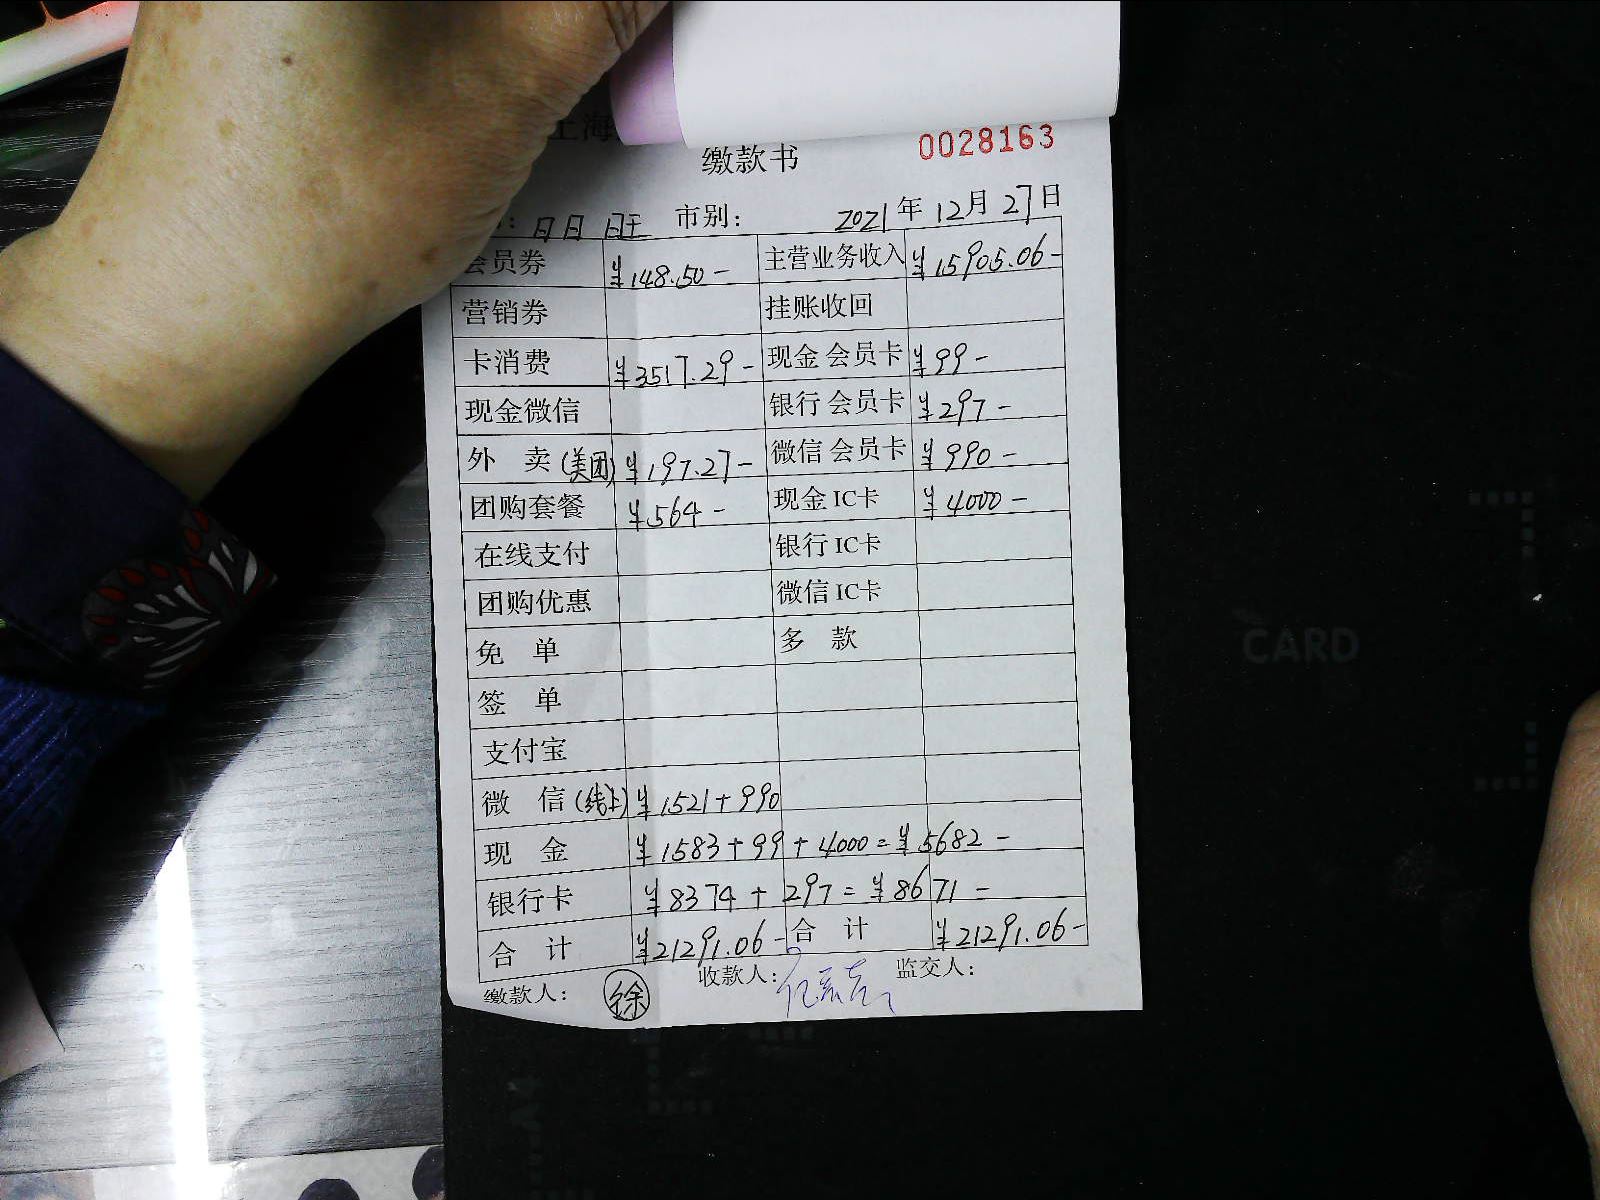 上海
缴款书 0028163
: 日日旺 市别: 2021年12月27日
会员券 ¥148.50- 主营业务收入 ¥15905.06-
营销券 挂账收回
卡消费 ¥3517.29- 现金会员卡 ¥99-
现金微信 银行会员卡 ¥297-
外 卖(美团) ¥197.27- 微信会员卡 ¥990-
团购套餐 ¥564- 现金IC卡 ¥4000-
在线支付 银行IC卡
团购优惠 微信IC卡
免 单 多 款
签 单
支付宝
微 信(线上) ¥1521+990
现 金 ¥1583+99+4000=¥5682-
银行卡 ¥8374+297=¥8671-
合 计 ¥21291.06- 合 计 ¥21291.06-
缴款人: 徐 收款人: 监交人:
CARD